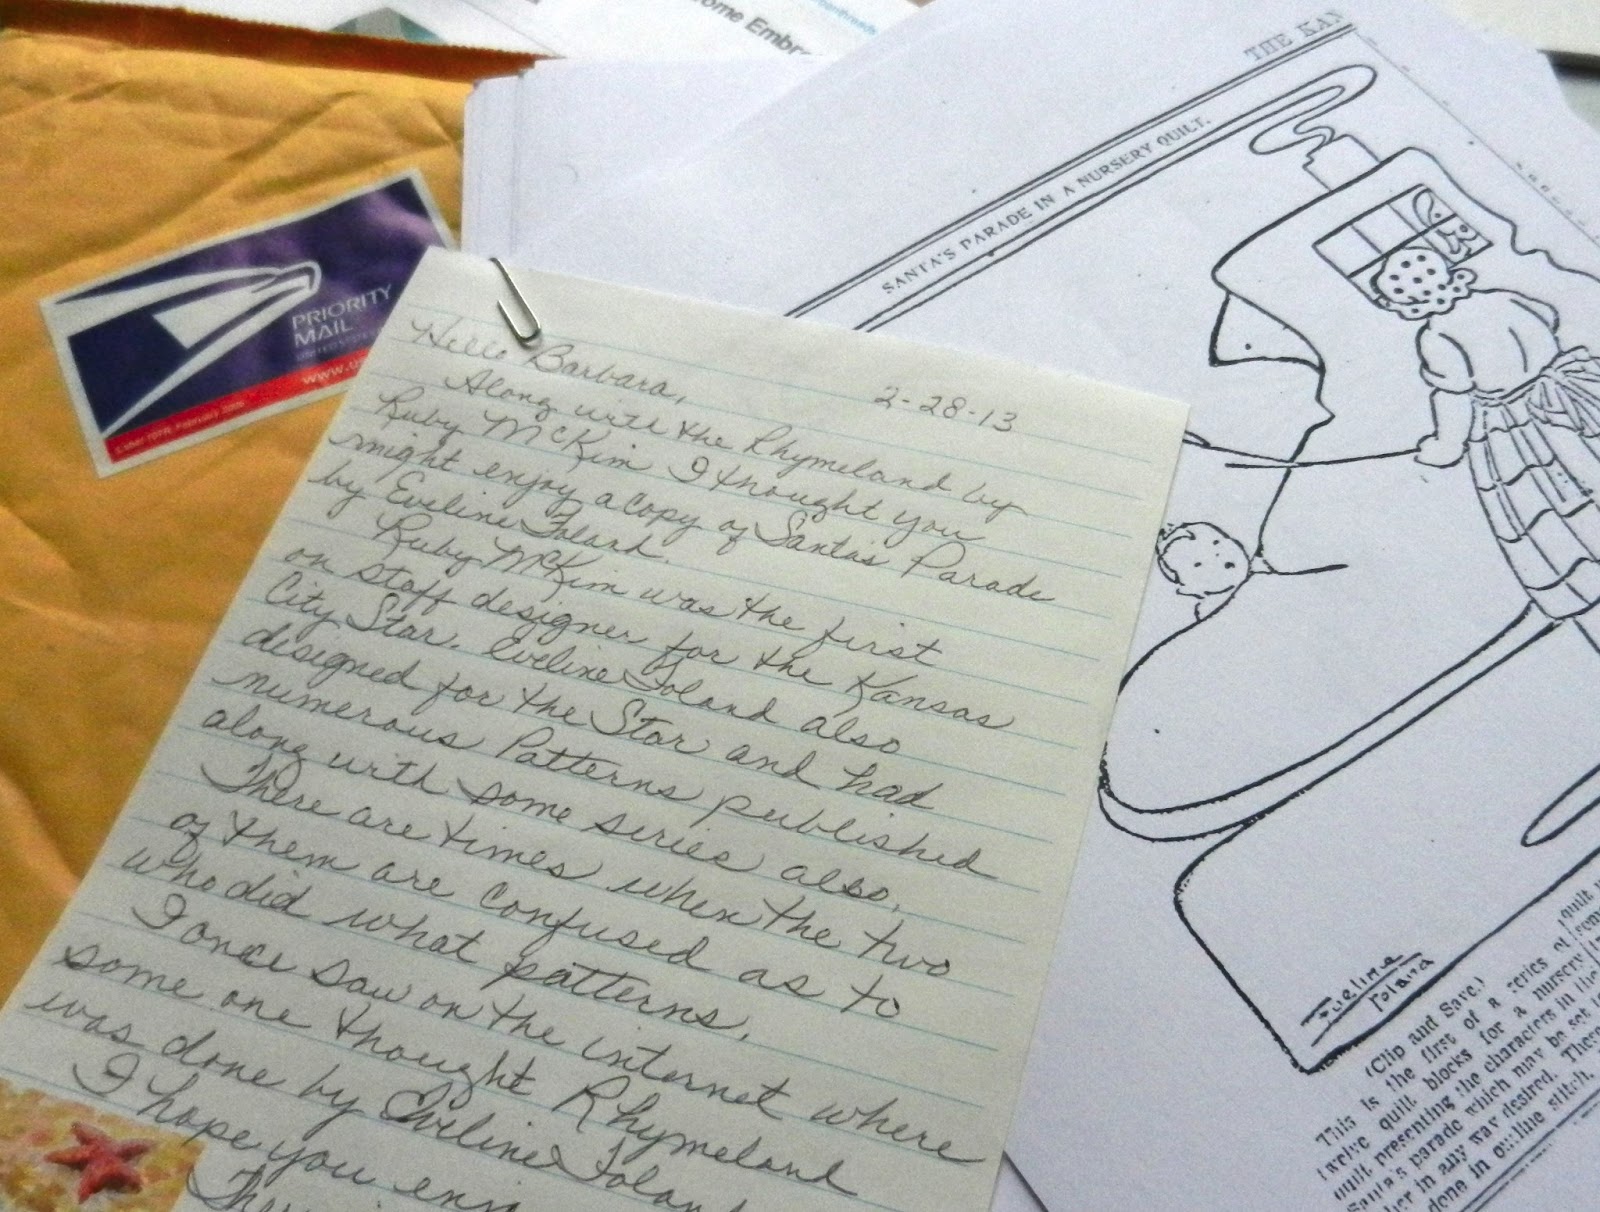 ome Embr
THE KAN
SANTA'S PARADE IN A NURSERY QUILT.
PRIORITY
MAIL
UNITED STATES
www.u
Label 107R, February 2006
Hello Barbara,
2-28-13
Along with the Rhymeland by
Ruby McKim I thought you
might enjoy a copy of Santa's Parade
by Eveline Foland.
Ruby McKim was the first
on staff designer for the Kansas
City Star. Eveline Foland also
designed for the Star and had
numerous Patterns published
along with some series also.
There are times when the two
of them are confused as to
who did what patterns.
I once saw on the internet where
some one thought Rhymeland
was done by Eveline Foland
I hope you enj
Eveline
Foland
(Clip and Save.)
This is the first of a series of
twelve quilt blocks for a nursery
quilt presenting the characters in the
Santa's parade which may be set
her in any way desired. These
done in outline stitch.
quilt